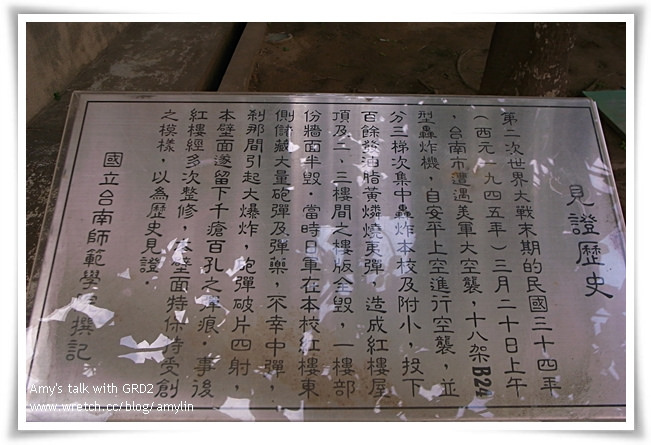 見證歷史
第二次世界大戰末期的民國三十四年
（西元一九四五年）三月二十日上午
，台南市遭遇美軍大空襲，十八架B24
型轟炸機，自安平上空進行空襲，並
分三梯次集中轟炸本校及附小，投下
百餘發油脂黃燐燒夷彈，造成紅樓屋
頂及二、三樓間之樓版全毀，一樓部
份牆面半毀。當時日軍在本校紅樓東
側儲藏大量砲彈及彈藥，不幸中彈，
剎那間引起大爆炸，砲彈破片四射，
本壁面遂留下千瘡百孔之痕。事後
紅樓經多次整修，本壁面特保持受創
之模樣，以為歷史見證。
國立台南師範學院撰記
Amy's talk with GRD2
www.wretch.cc/blog/amylin